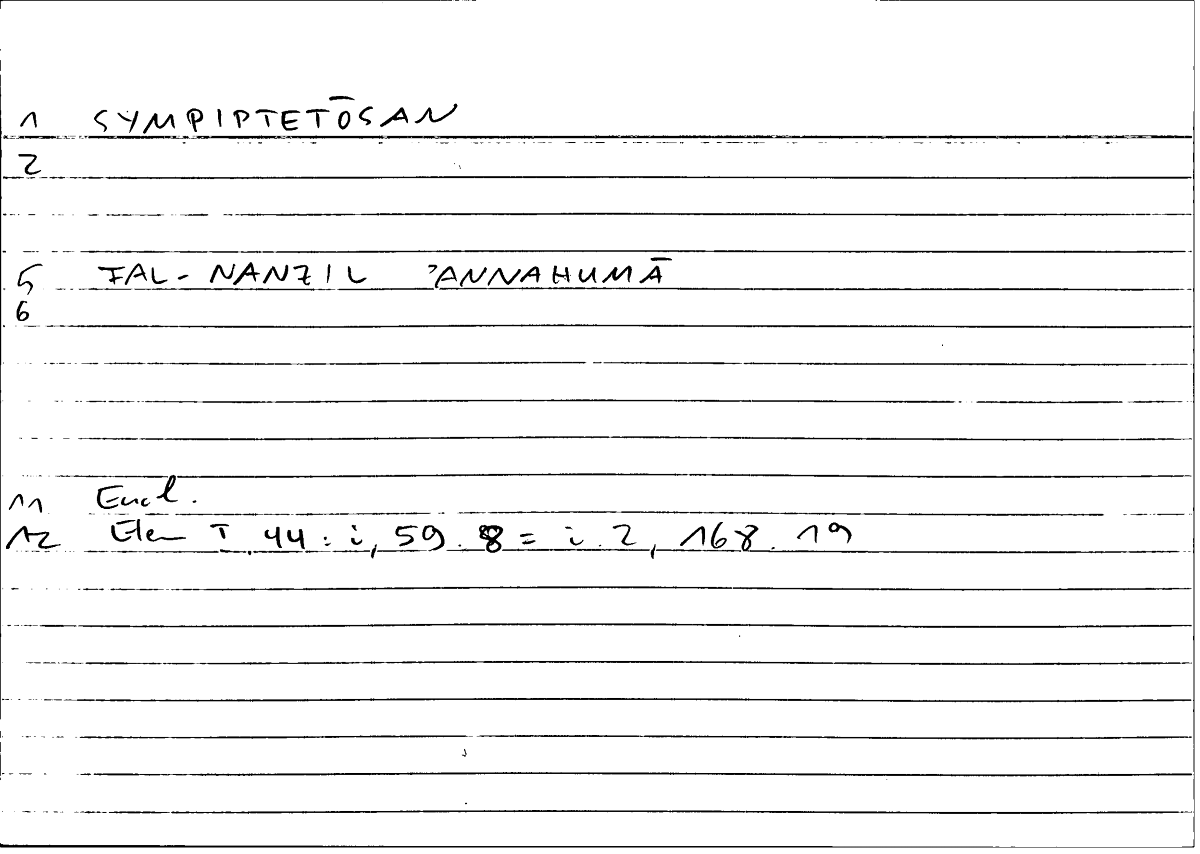 1 SYMPIPTETŌSAN
2
5 FAL-NANZIL ʾANNAHUMĀ
6
11 Eucl.
12 Elem I 44: i, 59. 8 = i. 2, 168. 19